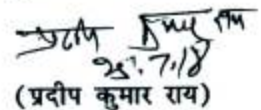 प्रदीप कुमार राय
25.7.18
(प्रदीप कुमार राय)